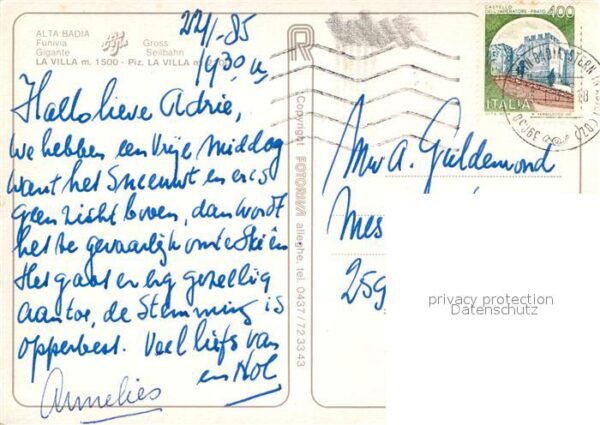 ALTA BADIA
Funivia Gross
Gigante Seilbahn
LA VILLA m. 1500 - Piz. LA VILLA m.
22/1-85
1930 u
Hallo lieve Adrie,
we hebben een vrije middag
want het sneeuwt en er is
geen zicht boven, dan wordt
het te gevaarlijk om te skiën
Het gaat er erg gezellig
aan toe, de stemming is
opperbest. Veel liefs van
en Nol
Annelies
R
Copyright FOTORIVA alleghe. tel. 0437/723343
CASTELLO
DELL'IMPERATORE - PRATO
400
ITALIA
Mw A. Guldemond
Mes
259
privacy protection
Datenschutz